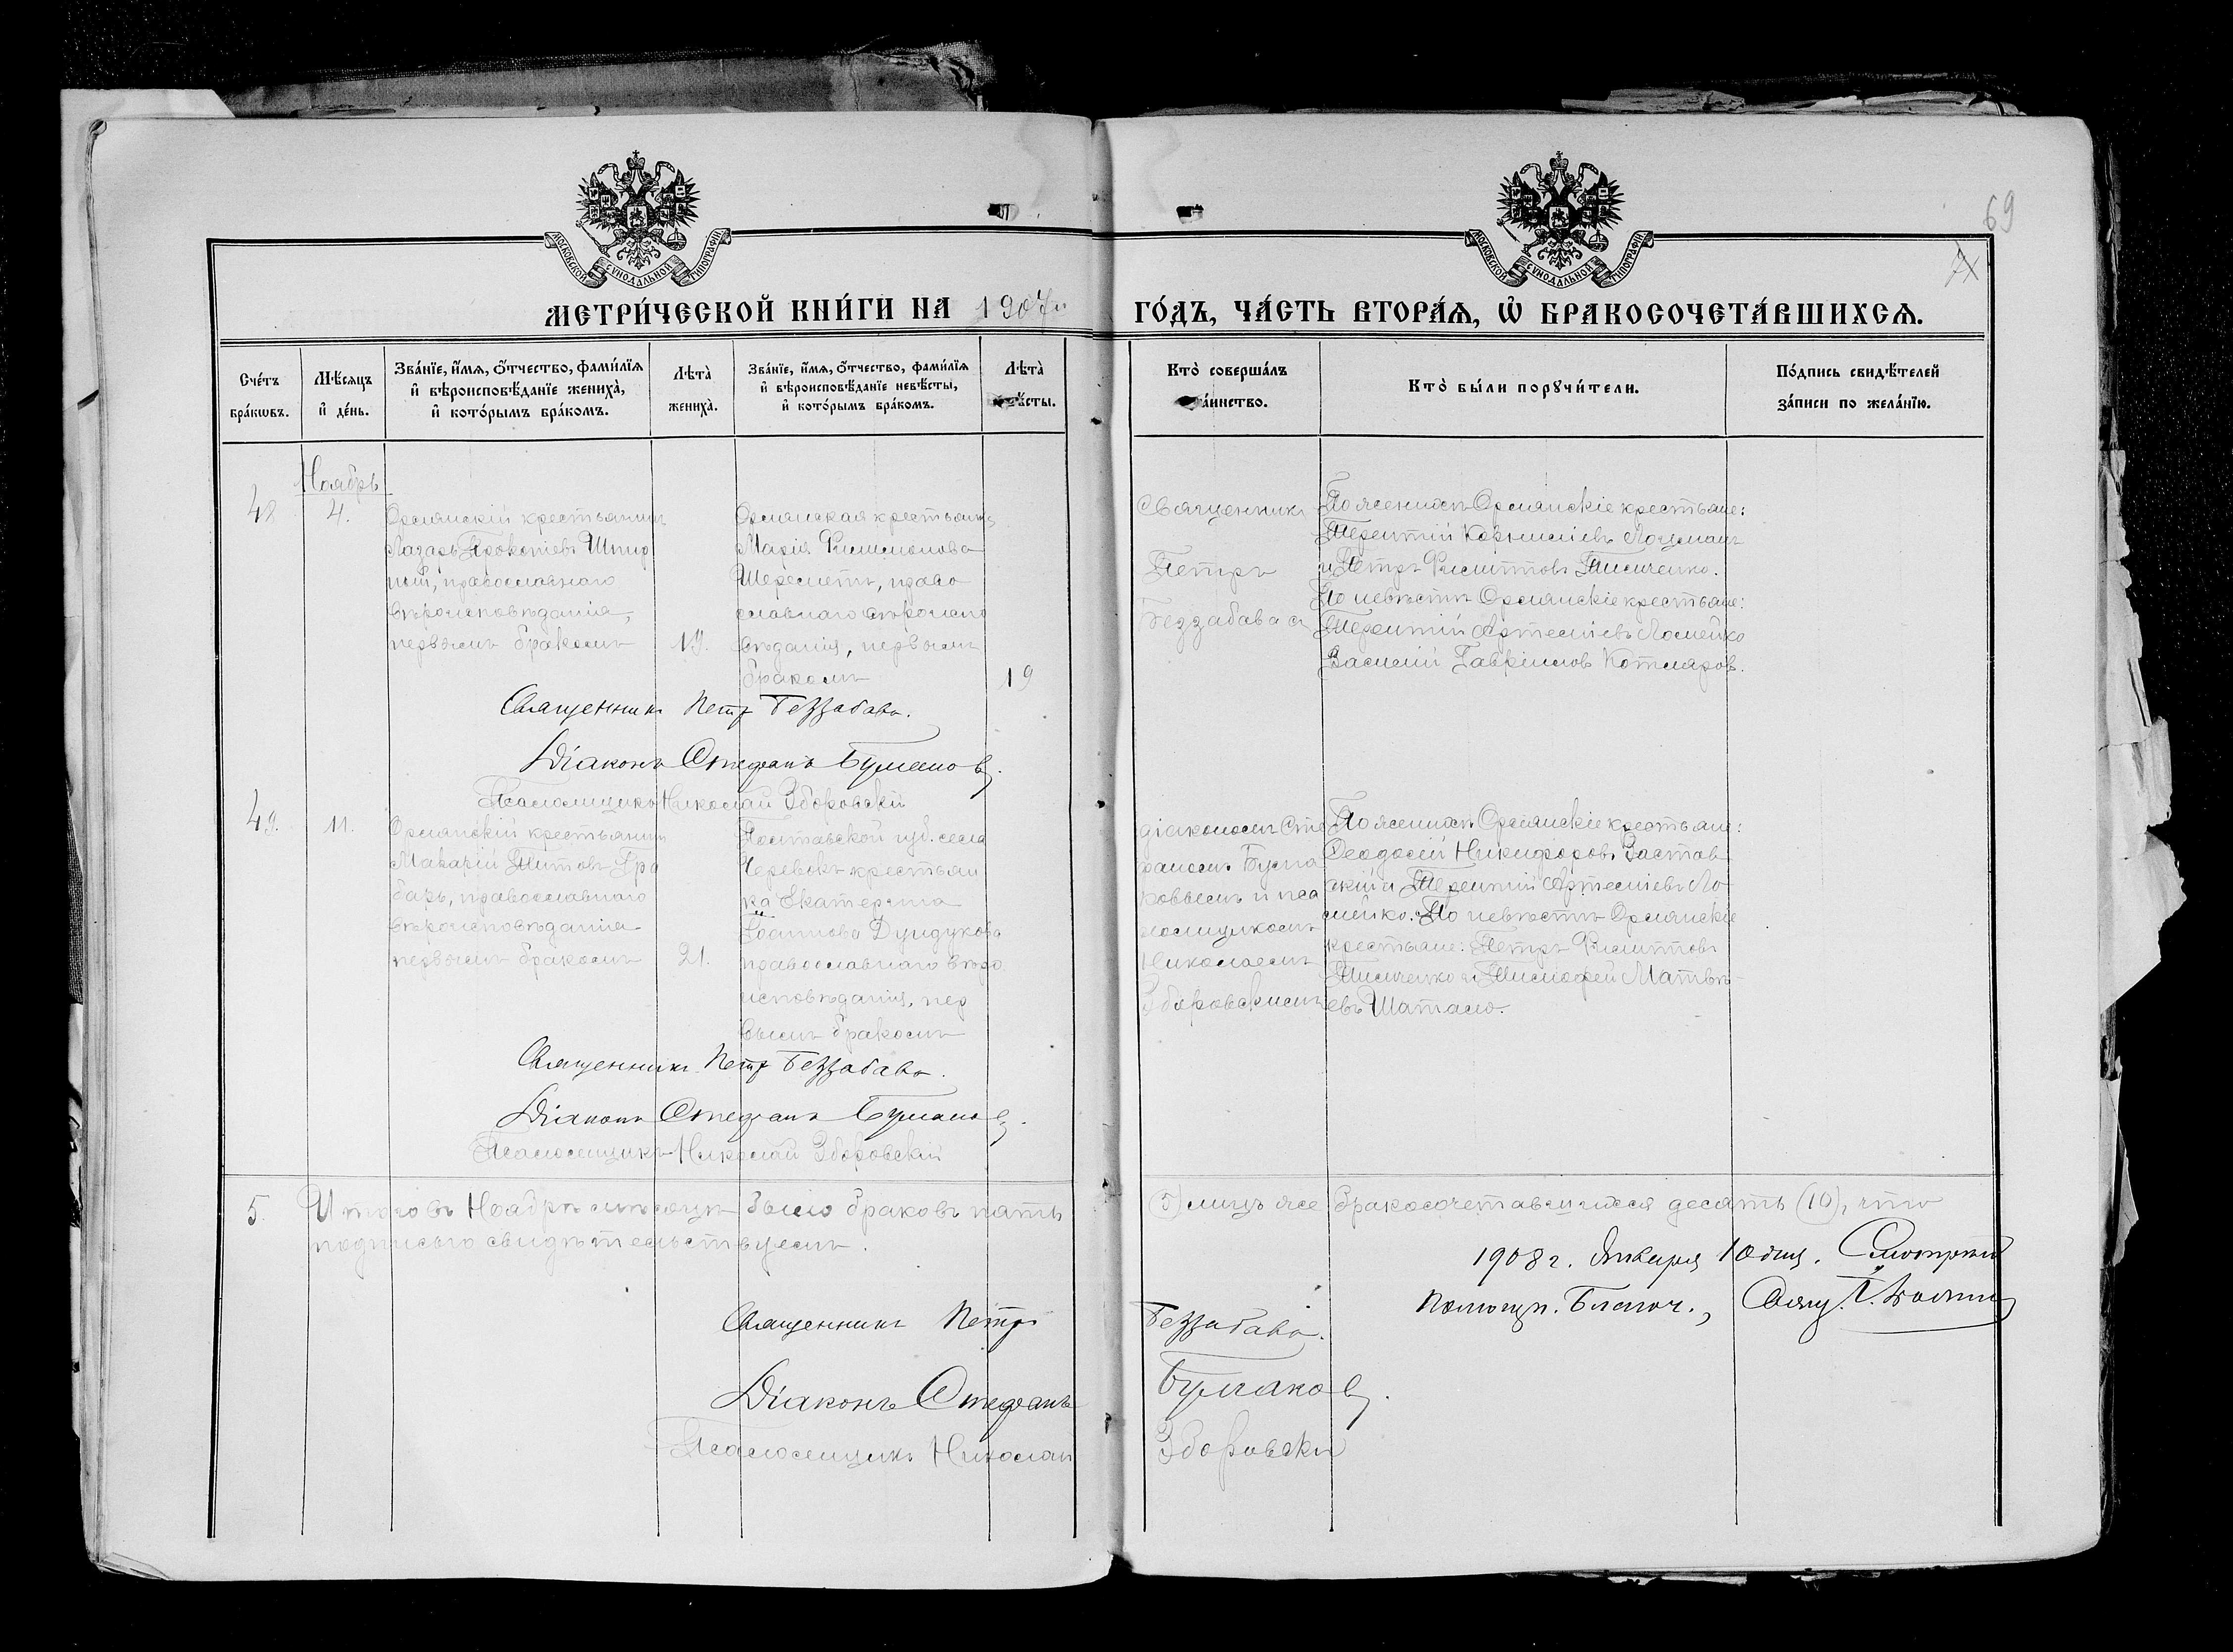 69
МОСКОВСКОЙ СѴНОДАЛЬНОЙ ТИПОГРАФІИ
МОСКОВСКОЙ СѴНОДАЛЬНОЙ ТИПОГРАФІИ
МЕТРИ́ЧЕСКОЙ КНИ́ГИ НА 1907
ГО́ДЪ, ЧА́СТЬ ВТОРА́Ѧ, Ѡ҆ БРАКОСОЧЕТА́ВШИХСѦ.
Сче́тъ бра́кѡвъ.
Мѣ́сѧцъ и҆ де́нь.
Зва́нїе, и҆́мѧ, ѻ҆́тчество, фами́лїѧ
и҆ вѣроисповѣ́данїе жениха̀,
и҆ кото́рымъ бра́комъ.
Лѣта̀
жениха̀.
Зва́нїе, и҆́мѧ, ѻ҆́тчество, фами́лїѧ
и҆ вѣроисповѣ́данїе невѣ́сты,
и҆ кото́рымъ бра́комъ.
Лѣта̀
невѣ́сты.
Кто̀ соверша́лъ
та́инство.
Кто̀ бы́ли порꙋчи́тели.
По́дпись свидѣ́телей
за́писи по жела́нїю.
Ноябрь
48
4.
Орлянскій крестьянинъ
Лазарь Прокопіевъ
православнаго
вѣроисповѣданія,
первымъ бракомъ
19.
Орлянская крестьянка
Марія Филимонова
Шереметъ, право
славнаго вѣроиспо
вѣданія, первымъ
бракомъ
19
Священникъ
Петръ
Беззабава
По женихѣ Орлянскіе крестьяне:
Терентій Корниліевъ Лоцманъ
и Петръ Филипповъ Тищенко.
По невѣстѣ Орлянскіе крестьяне:
Терентій Артеміевъ Ломейко
Василій Гавріиловъ Котляров.
Священникъ Петръ Беззабава.
Діаконъ Стефанъ Булгаковъ.
Псаломщикъ Николай Зборовскій
49.
11.
Орлянскій крестьянинъ
Макарій Титовъ Гра
барь, православнаго
вѣроисповѣданія
первымъ бракомъ
21.
Полтавской губ. села
Черевокъ крестьян
ка Екатерина
Іоаннова Дундукова
православнаго вѣро
исповѣданія, пер
вымъ бракомъ
діакономъ Сте
фаномъ Булга
ковымъ и пса
ломщикомъ
Николаемъ
Зборовскимъ
По женихѣ Орлянскіе крестьяне:
Ѳеодосій Никифоровъ Застав
скій и Терентій Артеміевъ Ло
мейко. По невѣстѣ Орлянскіе
крестьяне: Петръ Филипповъ
Тищенко и Тимофей Матвѣ-
евъ Шаталю.
Священникъ Петръ Беззабава.
Діаконъ Стефанъ Булгаковъ.
Псаломщикъ Николай Зборовскій
5. Итого въ Ноябрѣ мѣсяцѣ было браковъ пять (5) лицъ же бракосочетавшихся десять (10), что
подписью свидѣтельствуемъ.
1908 г. Января 10 дня. Смотрѣлъ
Помощн. Благоч., Свящ.
Священникъ Петръ Беззабава.
Діаконъ Стефанъ Булгаковъ.
Псаломщикъ Николай Зборовскій